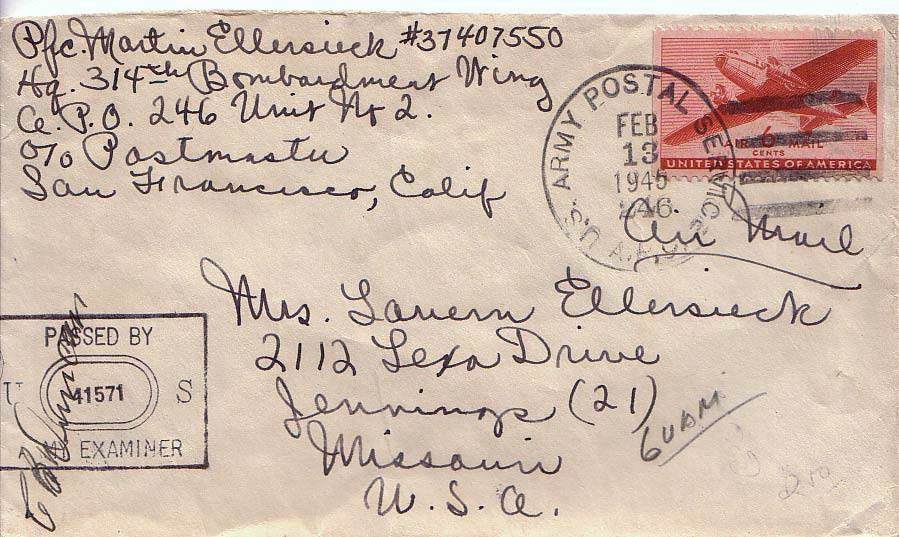 Pfc. Martin Ellersieck #37407550
Hq. 314th Bombardment Wing
A.P.O. 246 Unit No 2.
c/o Postmaster
San Francisco, Calif
U.S. ARMY POSTAL SERVICE
FEB
13
1945
246
A.P.O.
AIR 6 MAIL
CENTS
UNITED STATES OF AMERICA
Air Mail
Mrs. Lavern Ellersieck
2112 Lexa Drive
Jennings (21)
Missouri
U.S.A.
GUAM
PASSED BY
U 41571 S
EXAMINER